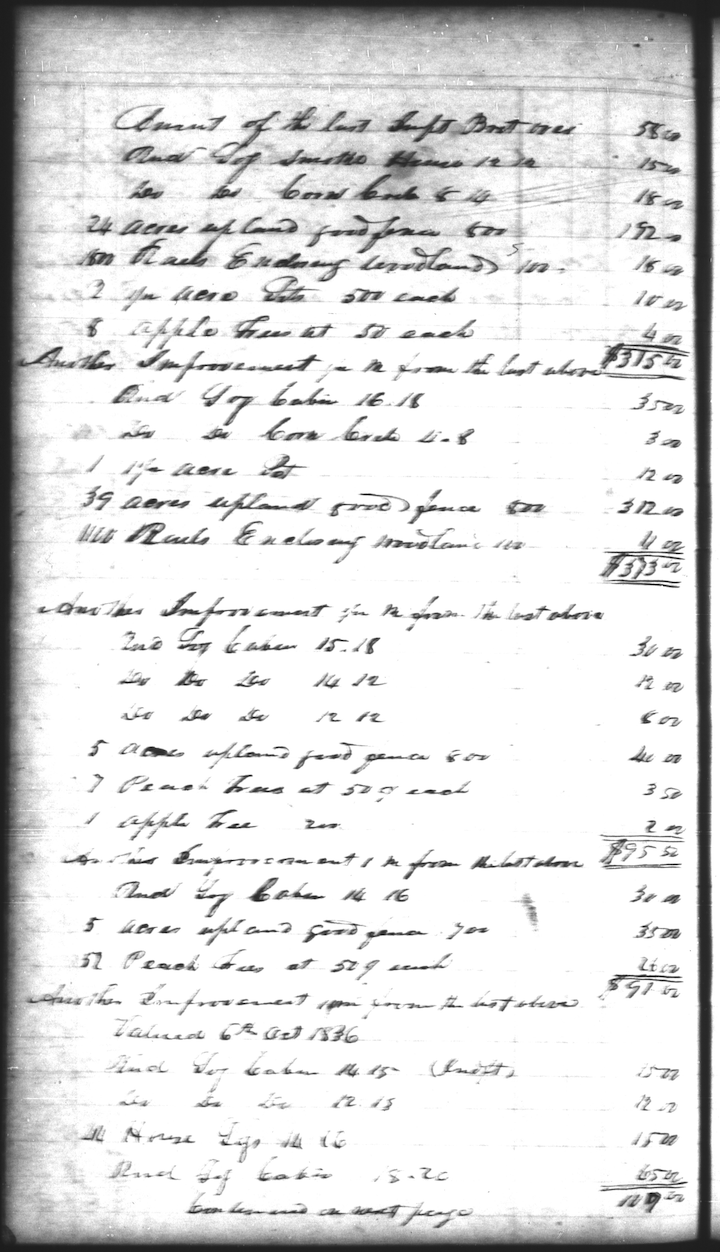 Amunt of the last Impt Brot over 58 00
Rnd Log Smoke House 12 12 15 00
Do Do Corn Crib 8 14 18 00
24 acres upland good fence 800 192 00
1800 Rails Enclosing Woodland 100 18 00
2 acre Lots 500 each 10 00
8 apple Trees at 50 each 4 00
$315 00
Another Improvement m from the last above
Rnd Log Cabin 16.18 35 00
Do Do Corn Crib 4-8 3 00
1 acre Lot 12 00
39 acres upland good fence 800 312 00
Rails Enclosing woodland 100 4 00
$373 00
Another Improvement m from the last above
Rnd Log Cabin 15.18 30 00
Do Do Do 14 12 12 00
Do Do Do 12 12 8 00
5 acres upland good fence 800 40 00
7 Peach Trees at 50 ¢ each 3 50
1 apple Tree 200 2 00
$95 50
Another Improvement 1 m from the last above
Rnd Log Cabin 14 16 30 00
5 acres upland good fence 700 35 00
52 Peach Trees at 50 ¢ each 26 00
$91 00
Another Improvement from the last above
Valued 6th Oct 1836
Rnd Log Cabin 14 15 15 00
Do Do Do 12.13 12 00
House Logs 14 16 15 00
Rnd Log Cabin 18-20 65 00
107 00
Continued on next page